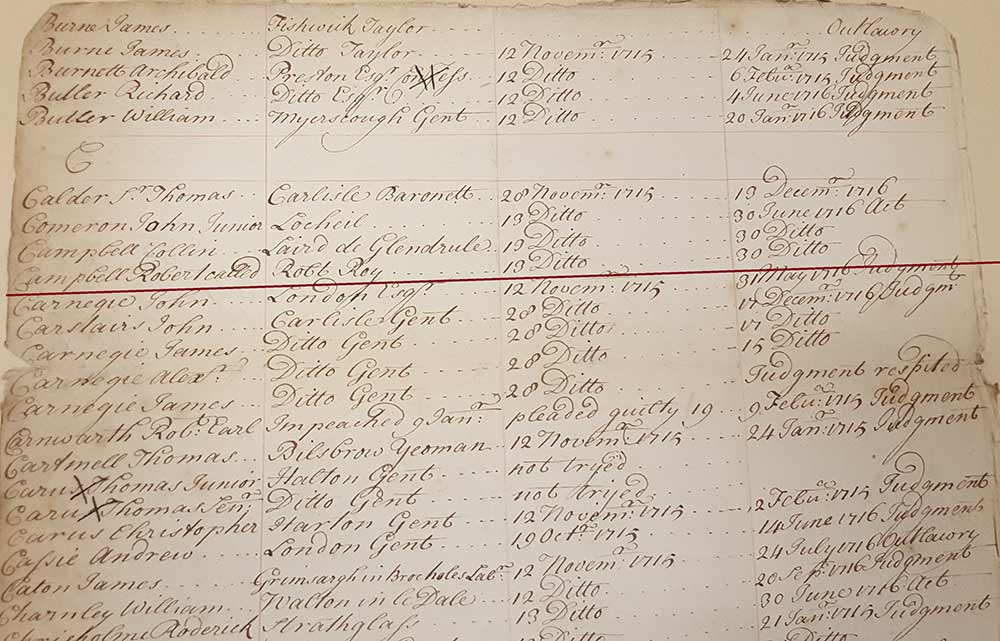 Burne James Fishwick Taylor Outlawry
Burne James Ditto Taylor 12 Novemr. 1715 24 Janry. 1715 Judgment
Burnett Archibald Preston Esqr. 12 Ditto 6 Febry. 1715 Judgment
Butler Richard Ditto Esqr. 12 Ditto 4 June 1716 Judgment
Butler William Myerscough Gent 12 Ditto 20 Janry. 1716 Judgment
C
Calder Sr. Thomas Carlisle Baronett 28 Novemr. 1715 13 Decemr. 1716
Comeron John Junior Locheil 13 Ditto 30 June 1716 Act
Campbell Collin Laird de Glendrule 13 Ditto 30 Ditto
Campbell Robert called Robt. Roy 13 Ditto 30 Ditto
Carnegie John London Esqr. 12 Novemr. 1715 31 May 1716 Judgment
Carstairs John Carlisle Gent 28 Ditto 17 Decemr. 1716 Judgmt
Carnegie James Ditto Gent 28 Ditto 17 Ditto
Carnegie Alexr. Ditto Gent 28 Ditto 15 Ditto
Carnegie James Ditto Gent 28 Ditto Judgment respited
Carnwarth Robt. Earl Impeached 9 Janry. pleaded guilty 19 9 Febry. 1715 Judgment
Cartmell Thomas Bilsbrow Yeoman 12 Novemr. 1715 24 Janry. 1715 Judgment
Carus Thomas Junior Halton Gent not tryed
Carus Thomas Senr. Ditto Gent not tryed
Carus Christopher Harlon Gent 12 Novemr. 1715 2 Febry. 1715 Judgment
Cassie Andrew London Gent 19 Octr. 1715 14 June 1716 Judgment
Caton James Grimsargh in Brocholes Labr. 12 Novemr. 1715 24 July 1716 Outlawry
Charnley William Walton in le Dale 12 Ditto 20 Sepr. 1716 Judgment
Chrisholme Roderick Strathglass 13 Ditto 30 June 1716 Act
Ditto 21 Janry. 1715 Judgment
Ditto